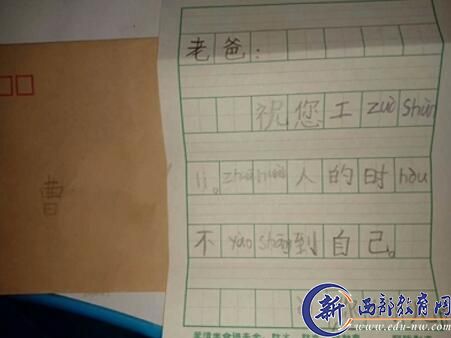 老爸：
祝您工zuò shùn
lì。zhuā huài人的时hòu
不yào shāng到自己。
曹
新 西部教育网
www.edu-nw.com